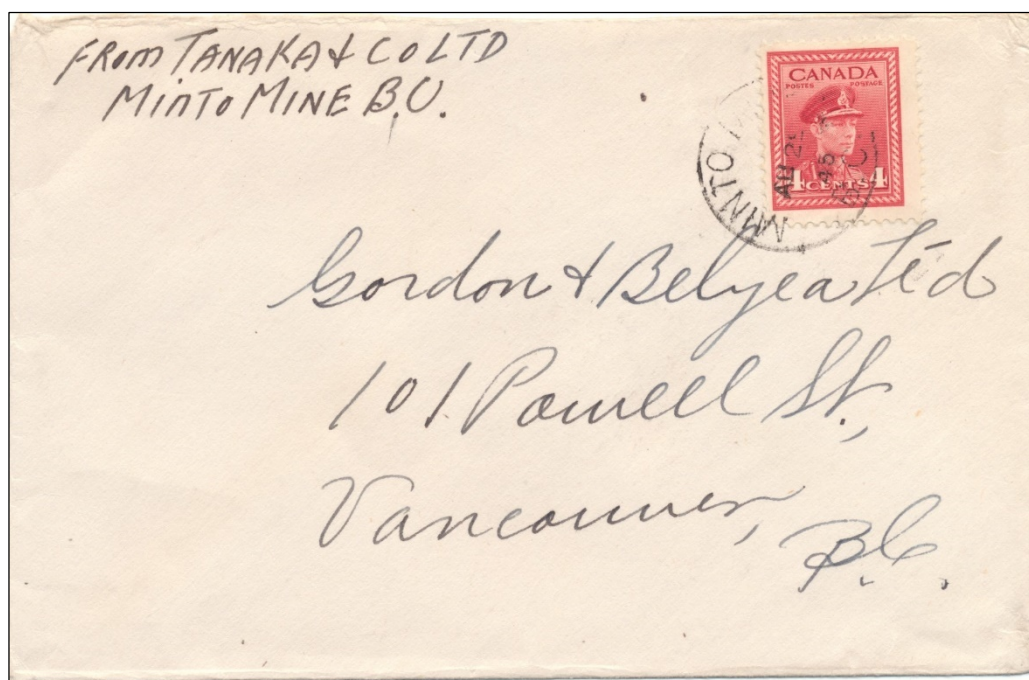 FROM TANAKA & CO LTD
MINTO MINE B.C.
CANADA
POSTES POSTAGE
4 CENTS 4
MINTO
AU 2
45
B C
Gordon & Belyea Ltd
101 Powell St.,
Vancouver,
B.C.